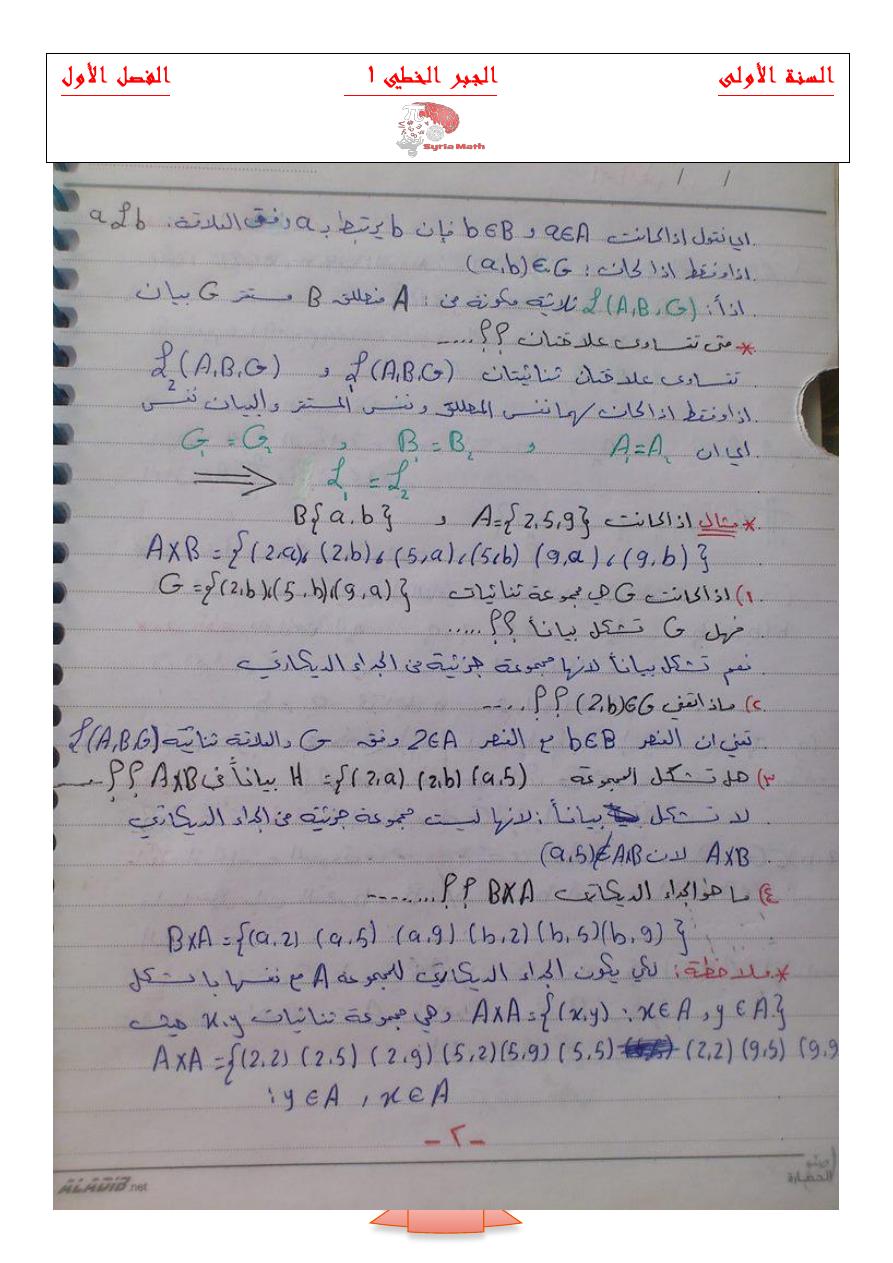 السنة الأولى الجبر الخطي ١ الفصل الأول
Syria Math
/ /
اي نقول اذا كانت a∈A و b∈B فإن b يرتبط بـ a وفق العلاقة. aℒb
اذا وفقط اذا كان : (a,b)∈G
اذاً : ℒ(A,B,G) ثلاثية مكونة من : A منطلق B مستقر G بيان
* متى تتساوى علاقتان ؟؟....
تتساوى علاقتان ثنائيتان ℒ₁(A,B,G) و ℒ₂(A,B,G)
اذا وفقط اذا كان لهما نفس المطلق ونفس المستقر والبيان نفس
اي ان A₁=A₂ و B₁=B₂ و G₁=G₂
⟹ ℒ₁=ℒ₂
* مثال اذا كانت A={2,5,9} و B{a,b}
AXB={(2,a), (2,b), (5,a), (5,b) (9,a), (9,b)}
١) اذا كانت G هي مجموعة ثنائيات G={(2,b),(5,b),(9,a)}
فهل G تشكل بياناً ؟؟.....
نعم تشكل بياناً لانها مجموعة جزئية من الجداء الديكارتي
٢) ماذا تعني (2,b)∈G ؟؟....
تعني ان العنصر b∈B مع العنصر 2∈A وفق G والعلاقة ثنائية ℒ(A,B,G)
٣) هل تشكل المجموعة H={(2,a) (2,b) (a,5) بياناً في AXB ؟؟....
لا تشكل بياناً : لانها ليست مجموعة جزئية من الجداء الديكارتي
AXB لان (a,5)∉AXB
٤) ما هو الجداء الديكارتي BXA ؟؟........
BXA={(a,2) (a,5) (a,9) (b,2) (b,5)(b,9)}
* ملاحظة : لكي يكون الجداء الديكارتي للمجموعة A مع نفسها بالشكل
AXA={(x,y) : x∈A , y∈A} وهي مجموعة ثنائيات x,y حيث
AXA={(2,2) (2,5) (2,9) (5,2)(5,9) (5,5) (2,2) (9,5) (9,9
: y∈A , x∈A
-٢-
ALADIB.net
الحضارة